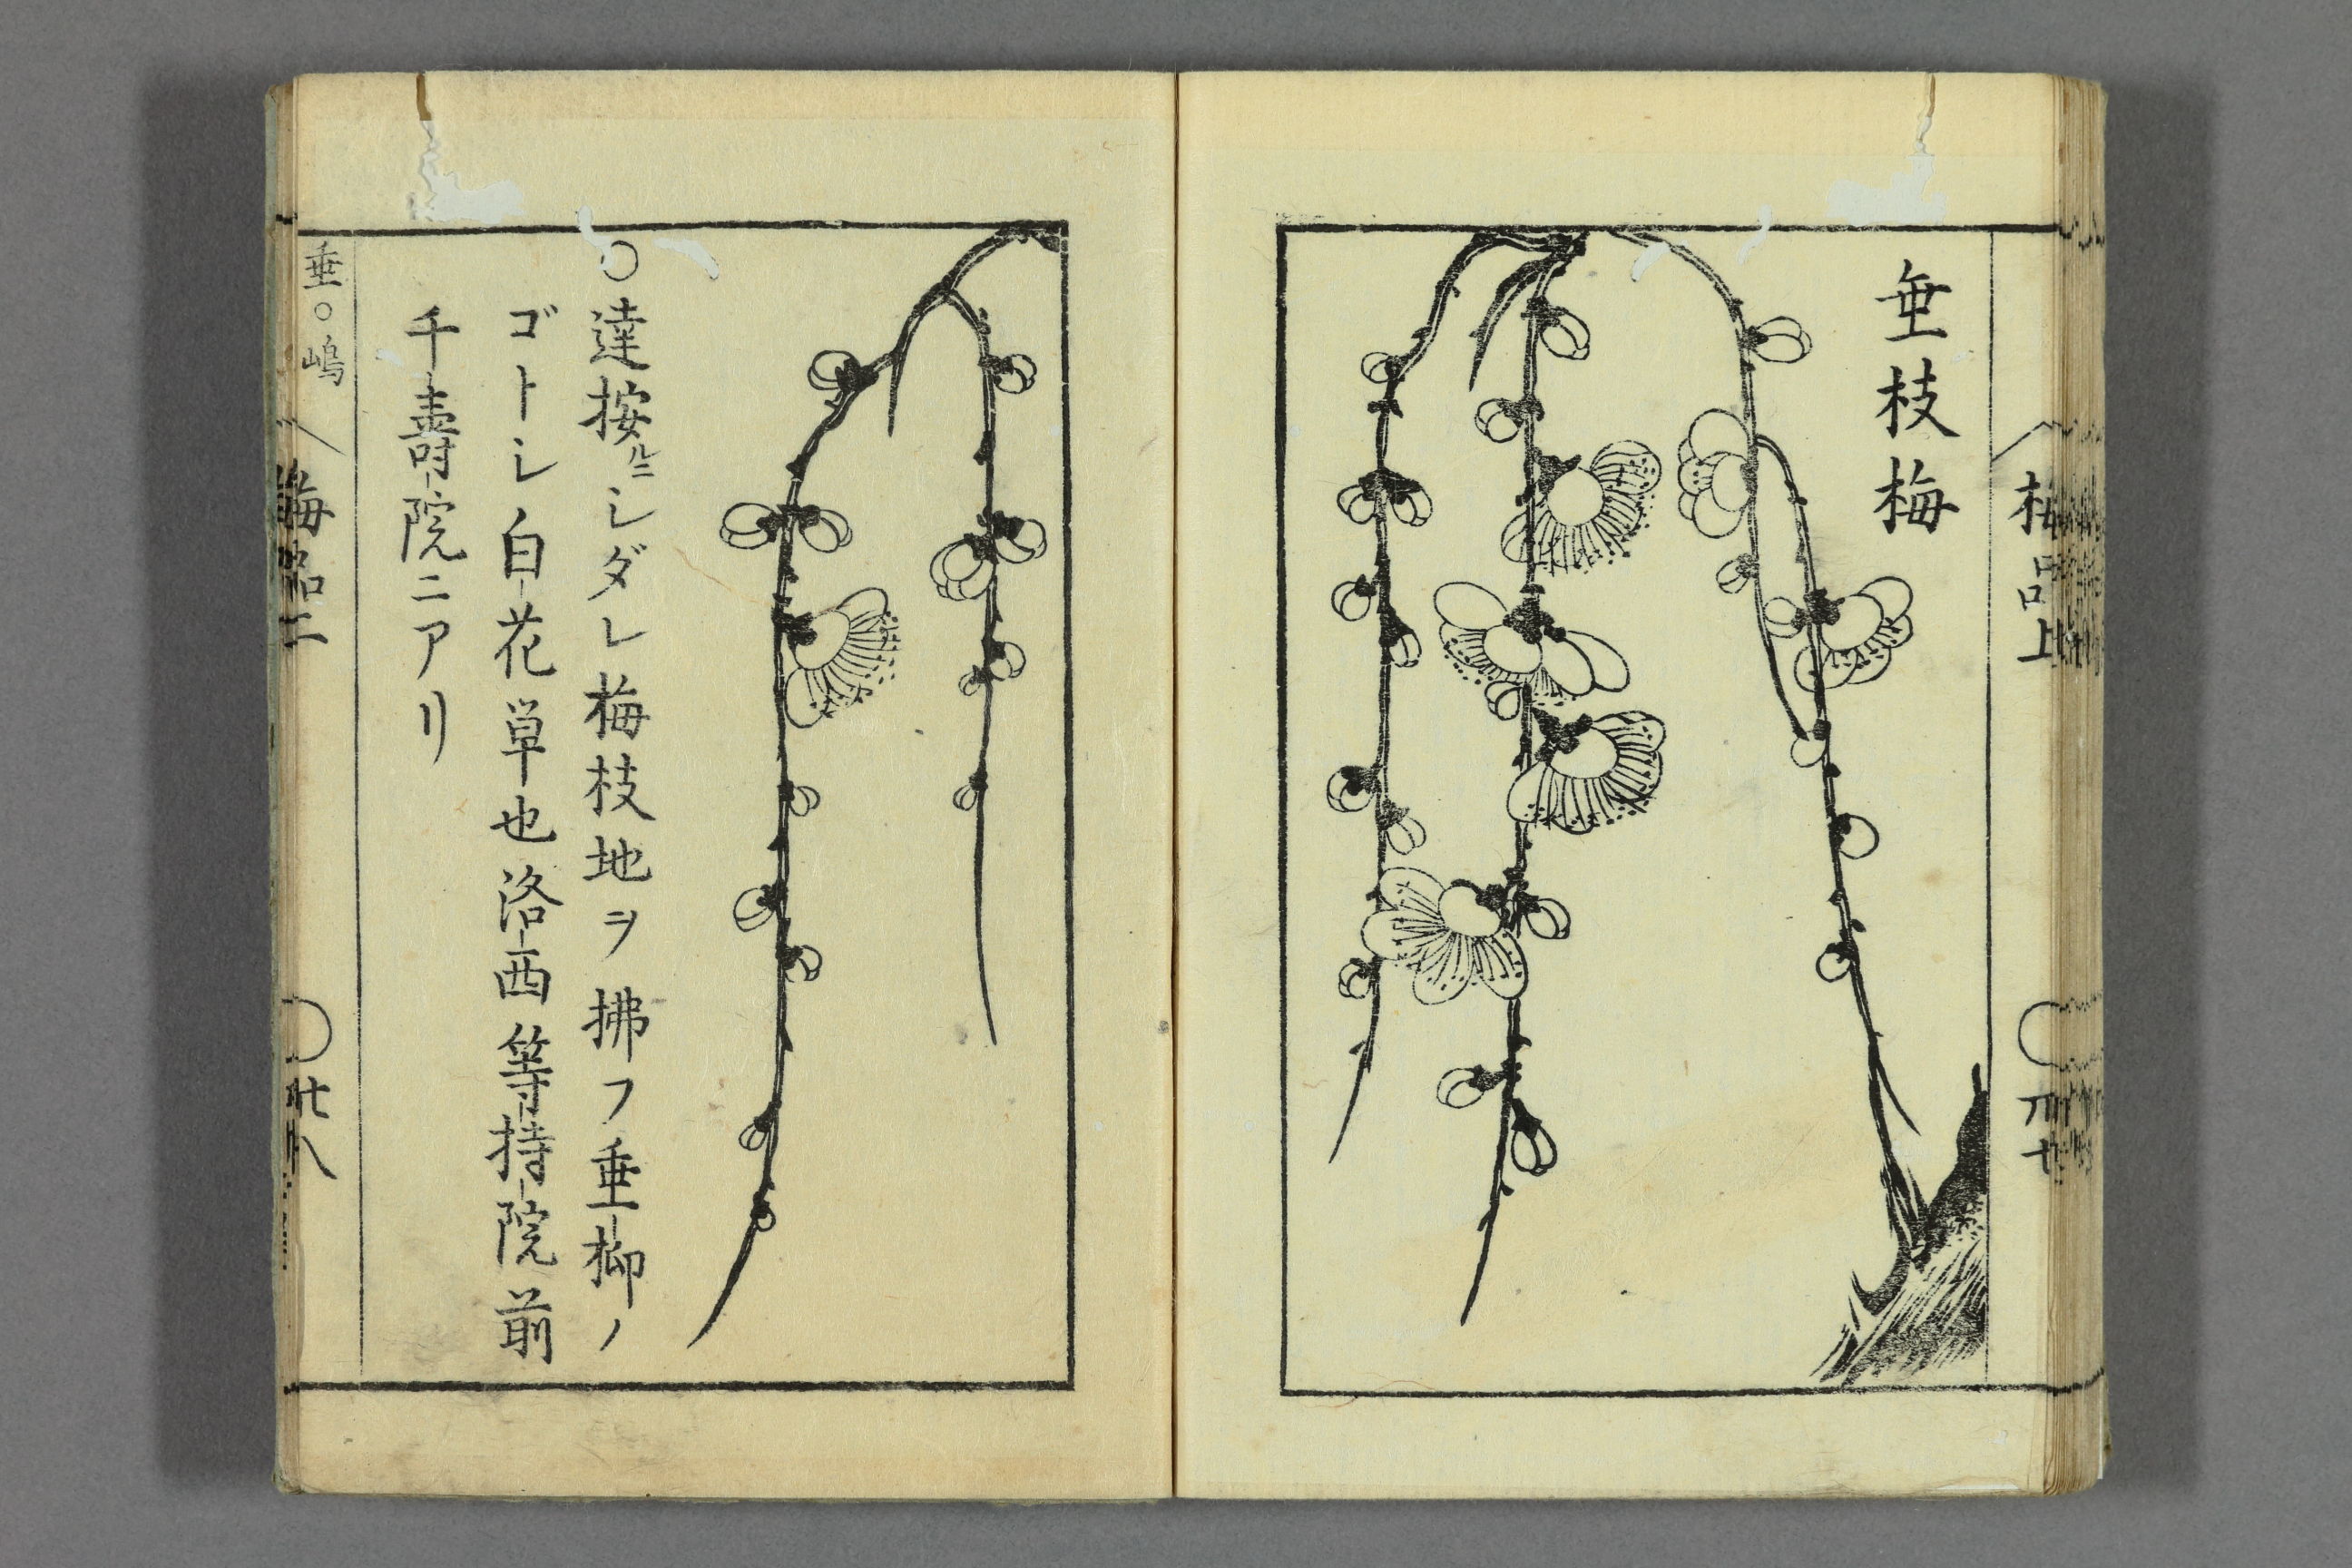 垂枝梅
梅品上
〇達按ルニシダレ梅枝地ヲ拂フ垂柳ノ
ゴトシ白花草也洛西等持院前
千壽院ニアリ
垂〇嶋